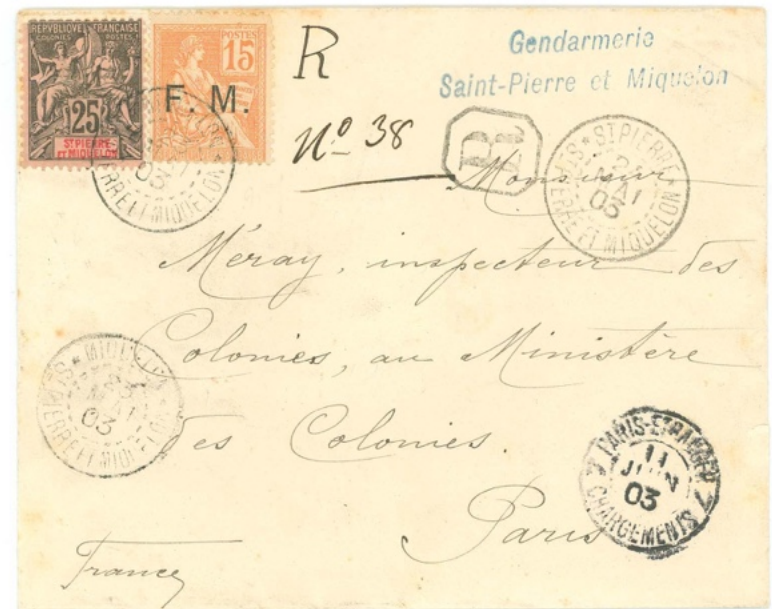 REPVBLIQVE FRANÇAISE
COLONIES POSTES
25
ST PIERRE
ET MIQUELON
POSTES
15
F. M.
R
Nº 38
Gendarmerie
Saint-Pierre et Miquelon
R
ST PIERRE
MAI
03
ST PIERRE ET MIQUELON
03
PIERRE ET MIQUELON
Monsieur
Méray, inspecteur des
Colonies, au Ministère
des Colonies.
Paris
France
MIQUELON
23
MAI
03
ST PIERRE ET MIQUELON
PARIS-ETRANGER
11
JUIN
03
CHARGEMENTS